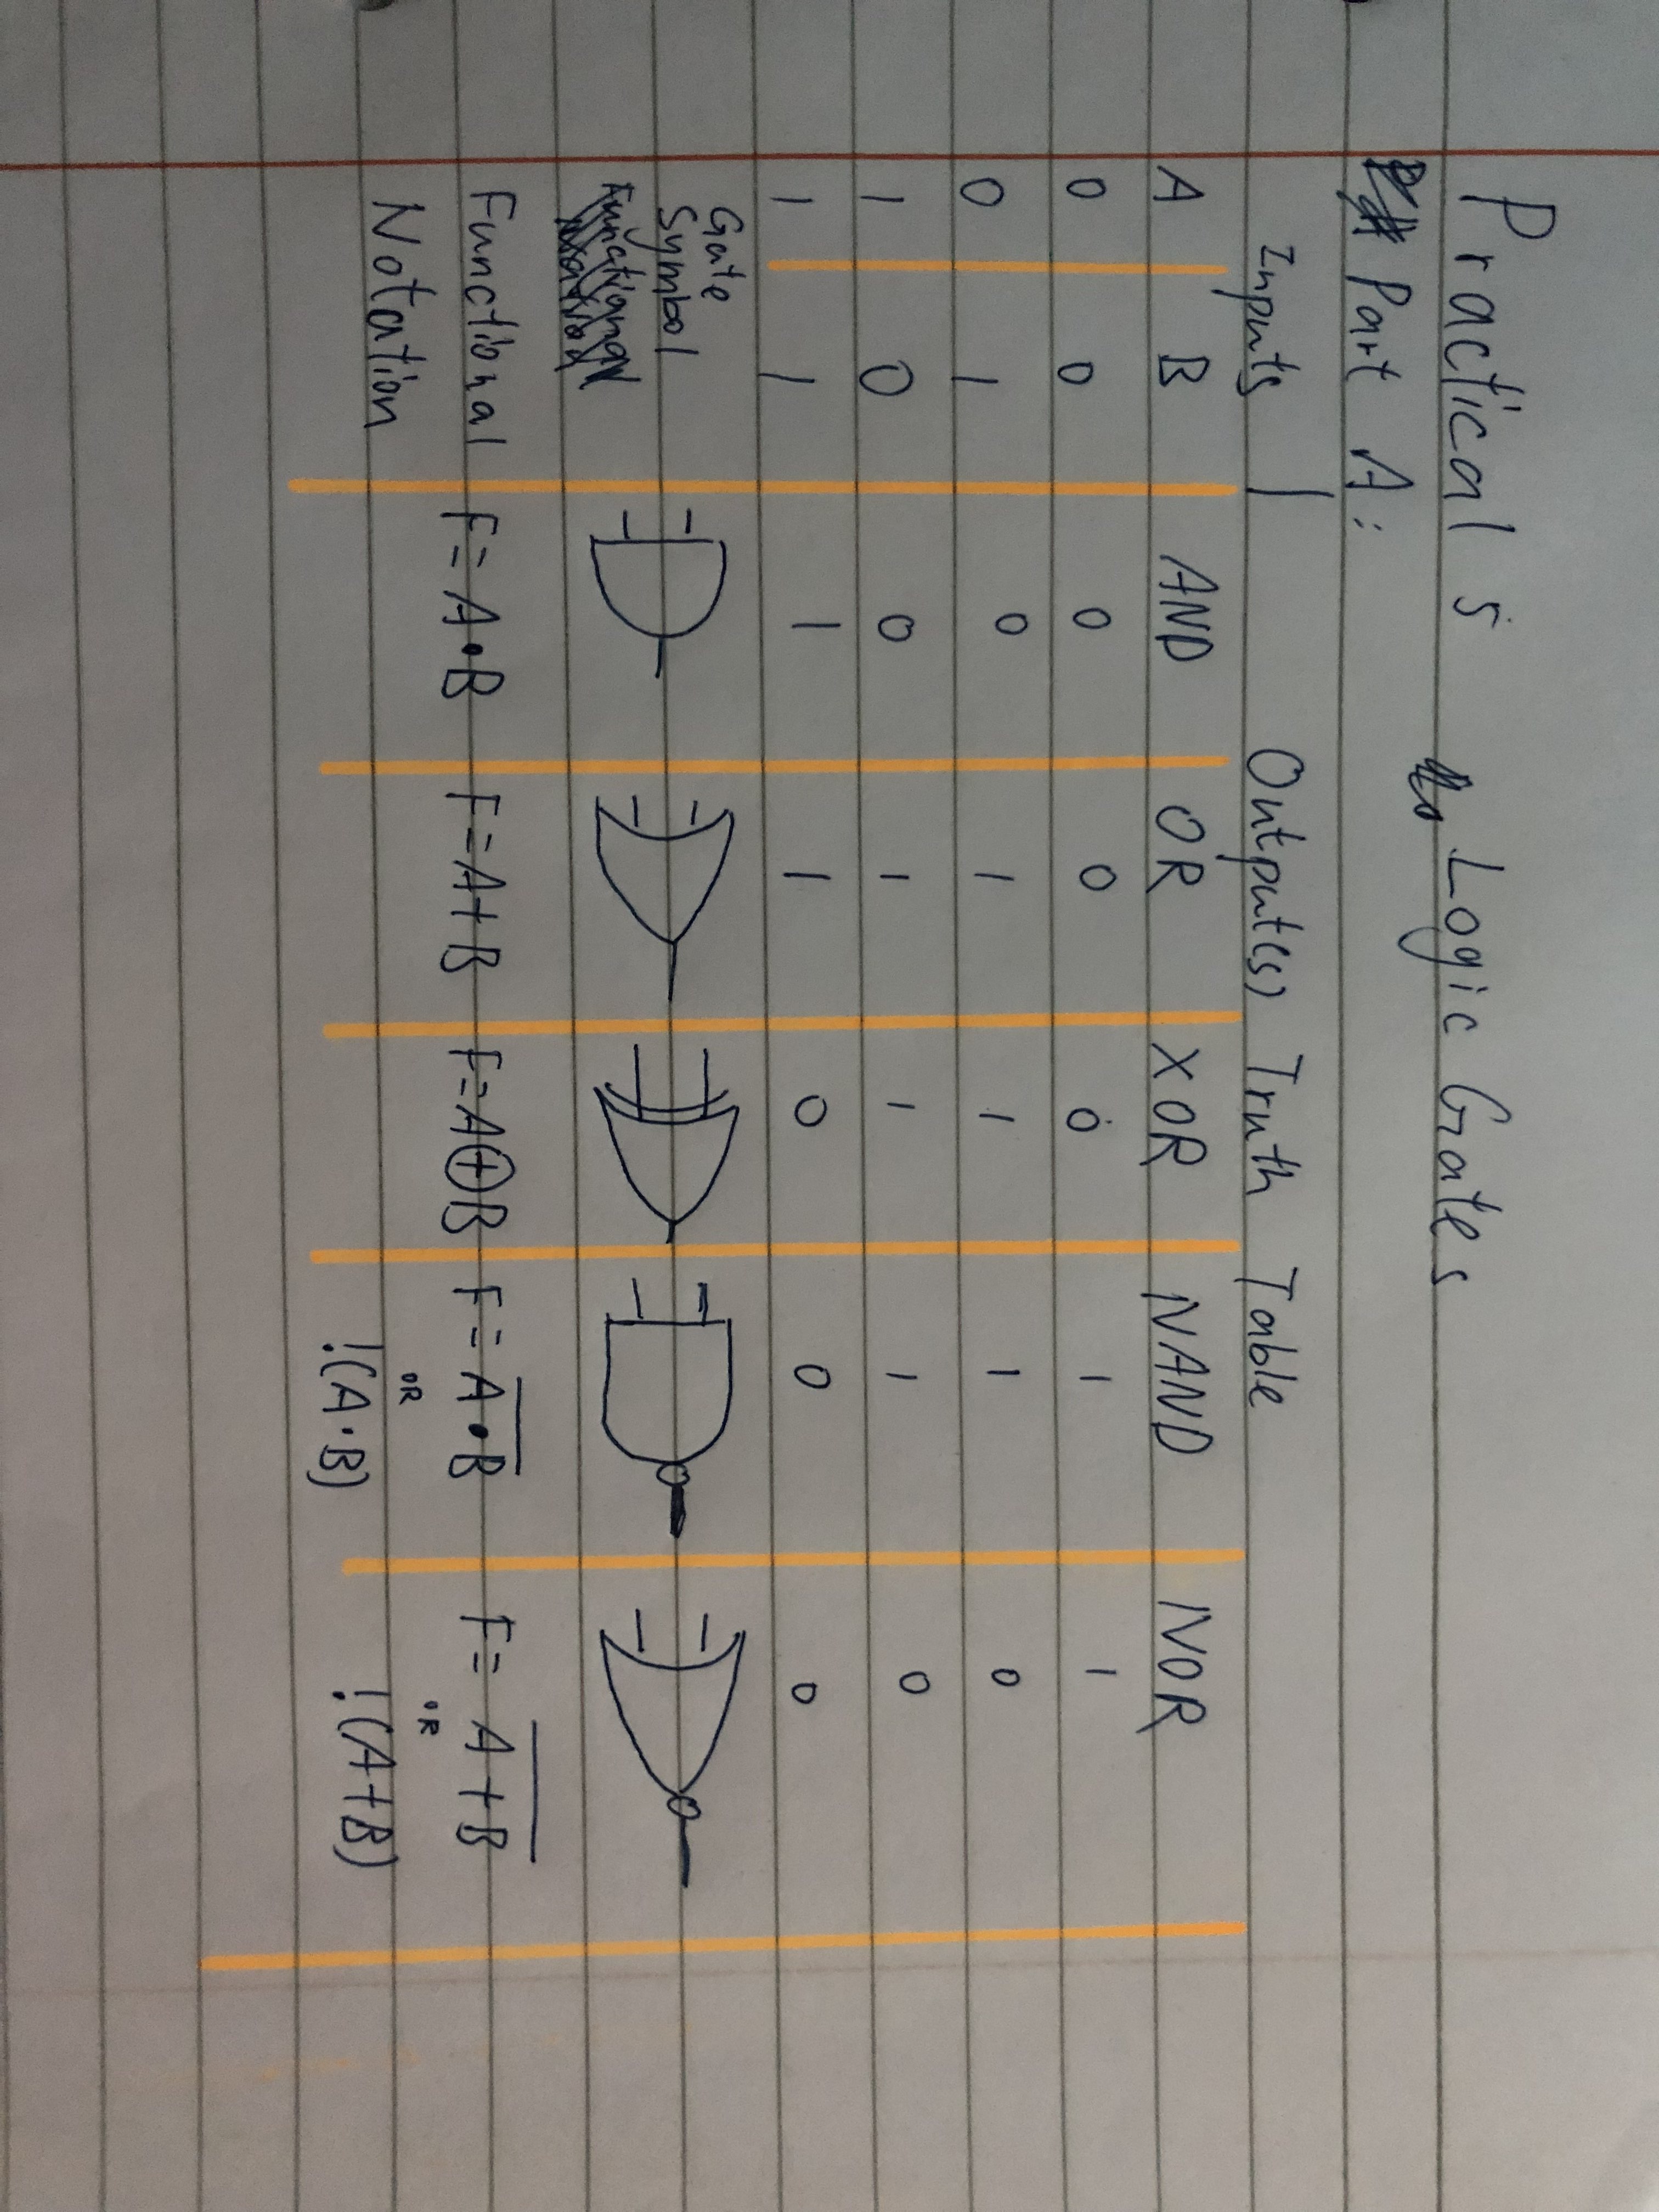 Practical 5 Logic Gates
Part A:
Inputs | Output(s) Truth Table
A B AND OR XOR NAND NOR
0 0 0 0 0 1 1
0 1 0 1 1 1 0
1 0 0 1 1 1 0
1 1 1 1 0 0 0
Gate
Symbol
Functional
Functional F=A•B F=A+B F=A⊕B F=A̅•̅B̅ F=A̅+̅B̅
Notation OR !(A·B) OR !(A+B)